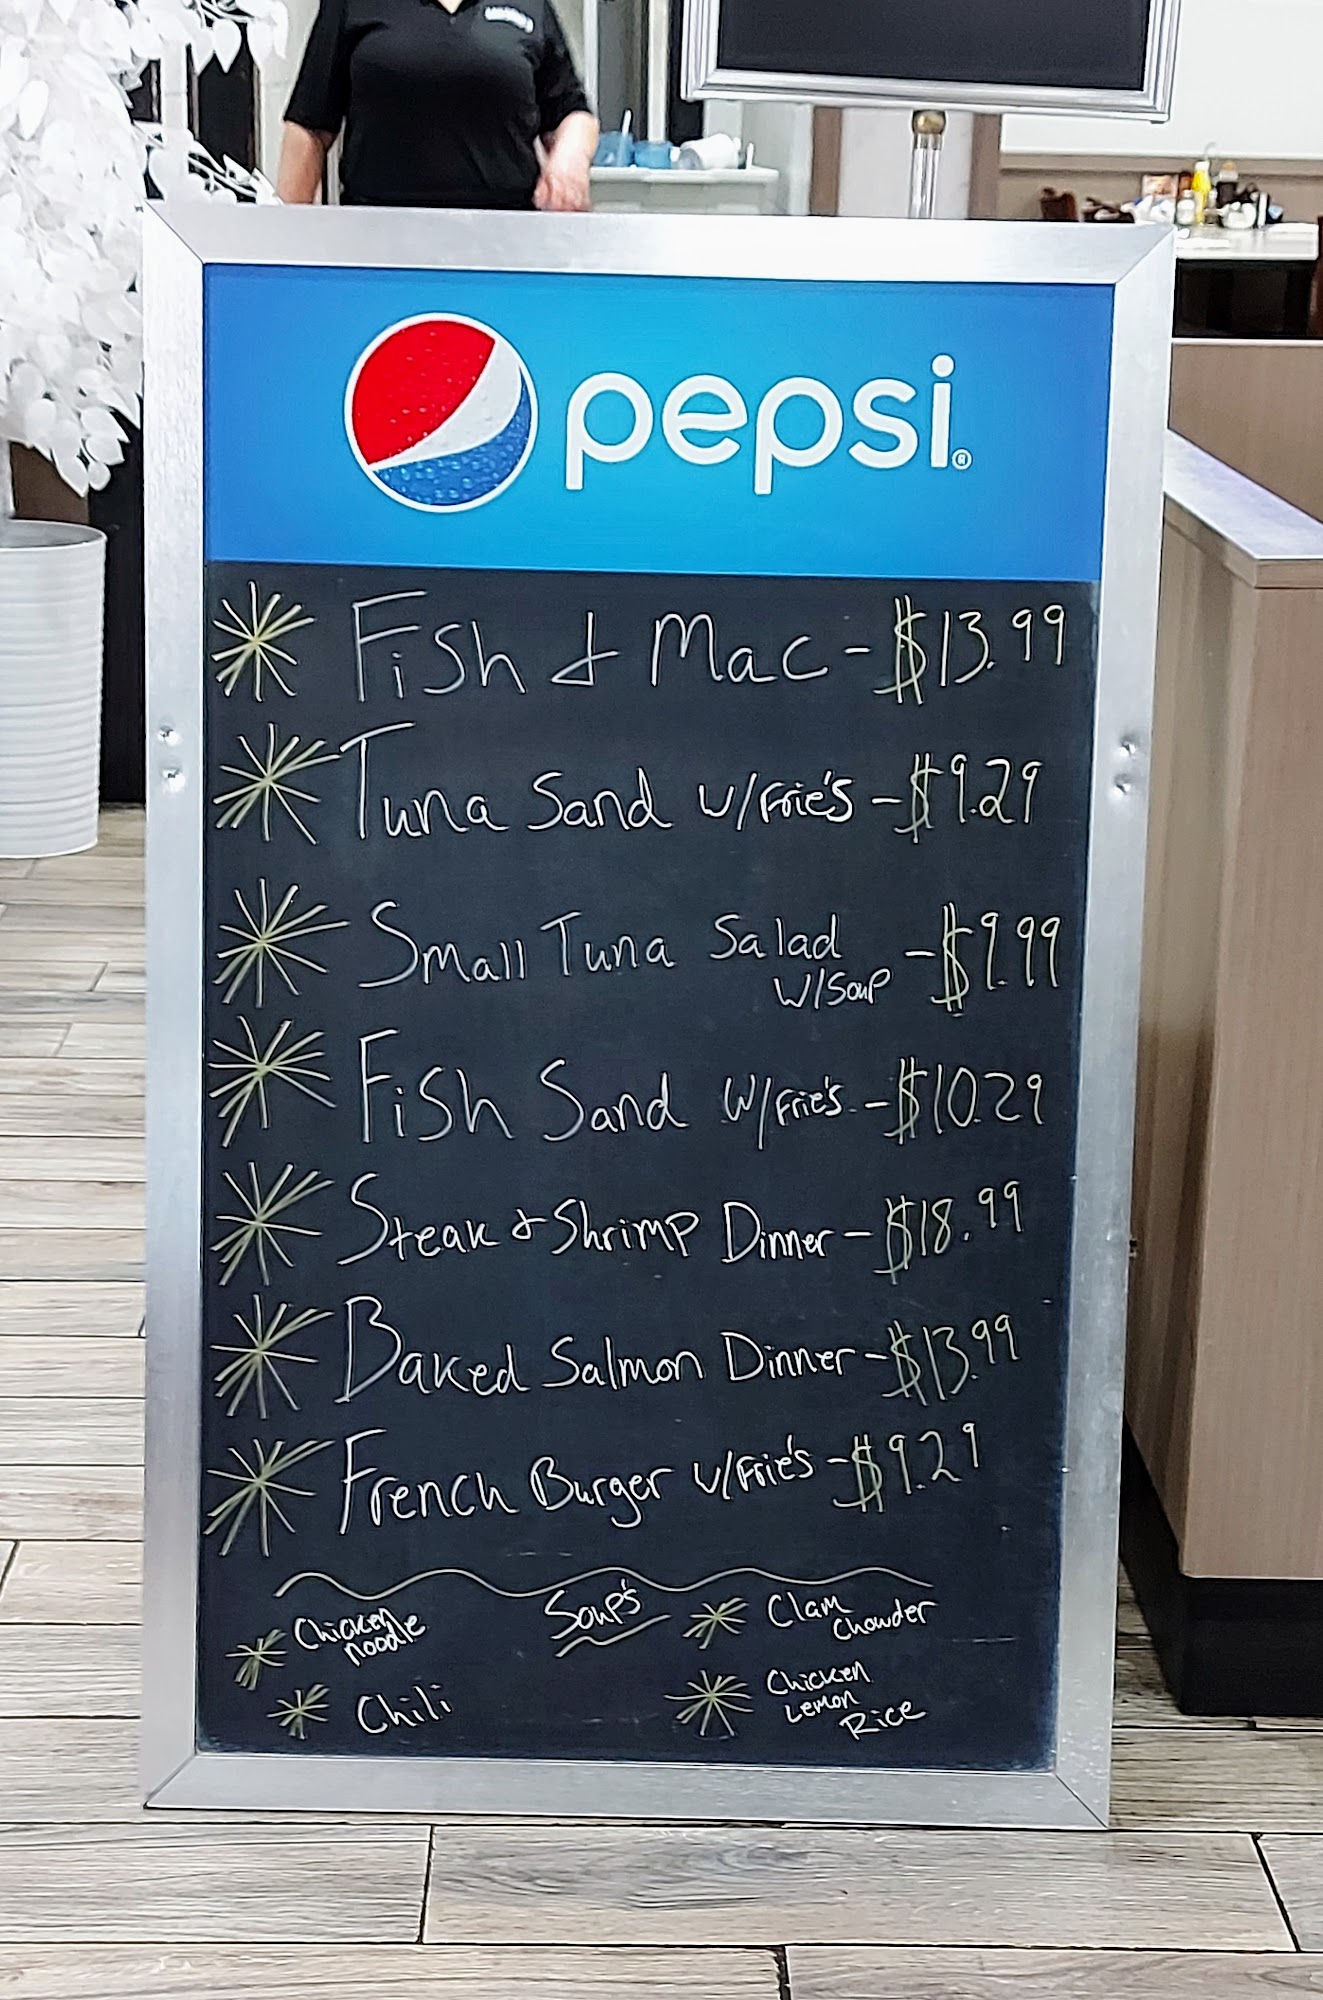 pepsi®
Fish & Mac - $13.99
Tuna Sand w/Frie's - $9.29
Small Tuna Salad - $9.99
w/Soup
Fish Sand w/Frie's. - $10.29
Steak & Shrimp Dinner - $18.99
Baked Salmon Dinner - $13.99
French Burger w/Frie's - $9.29
Soup's
Chicken
noodle
Chili
Clam
Chowder
Chicken
Lemon
Rice